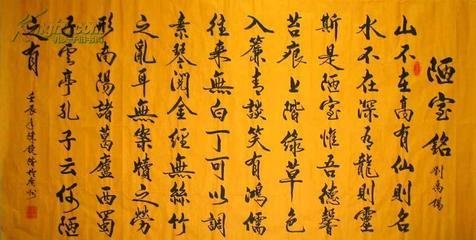 陋室銘 劉禹錫
山不在高有仙則名
水不在深有龍則靈
斯是陋室惟吾德馨
苔痕上階綠草色
入簾青談笑有鴻儒
往來無白丁可以調
素琴閱金經無絲竹
之亂耳無案牘之勞
形南陽諸葛廬西蜀
子雲亭孔子云何陋
之有 壬辰